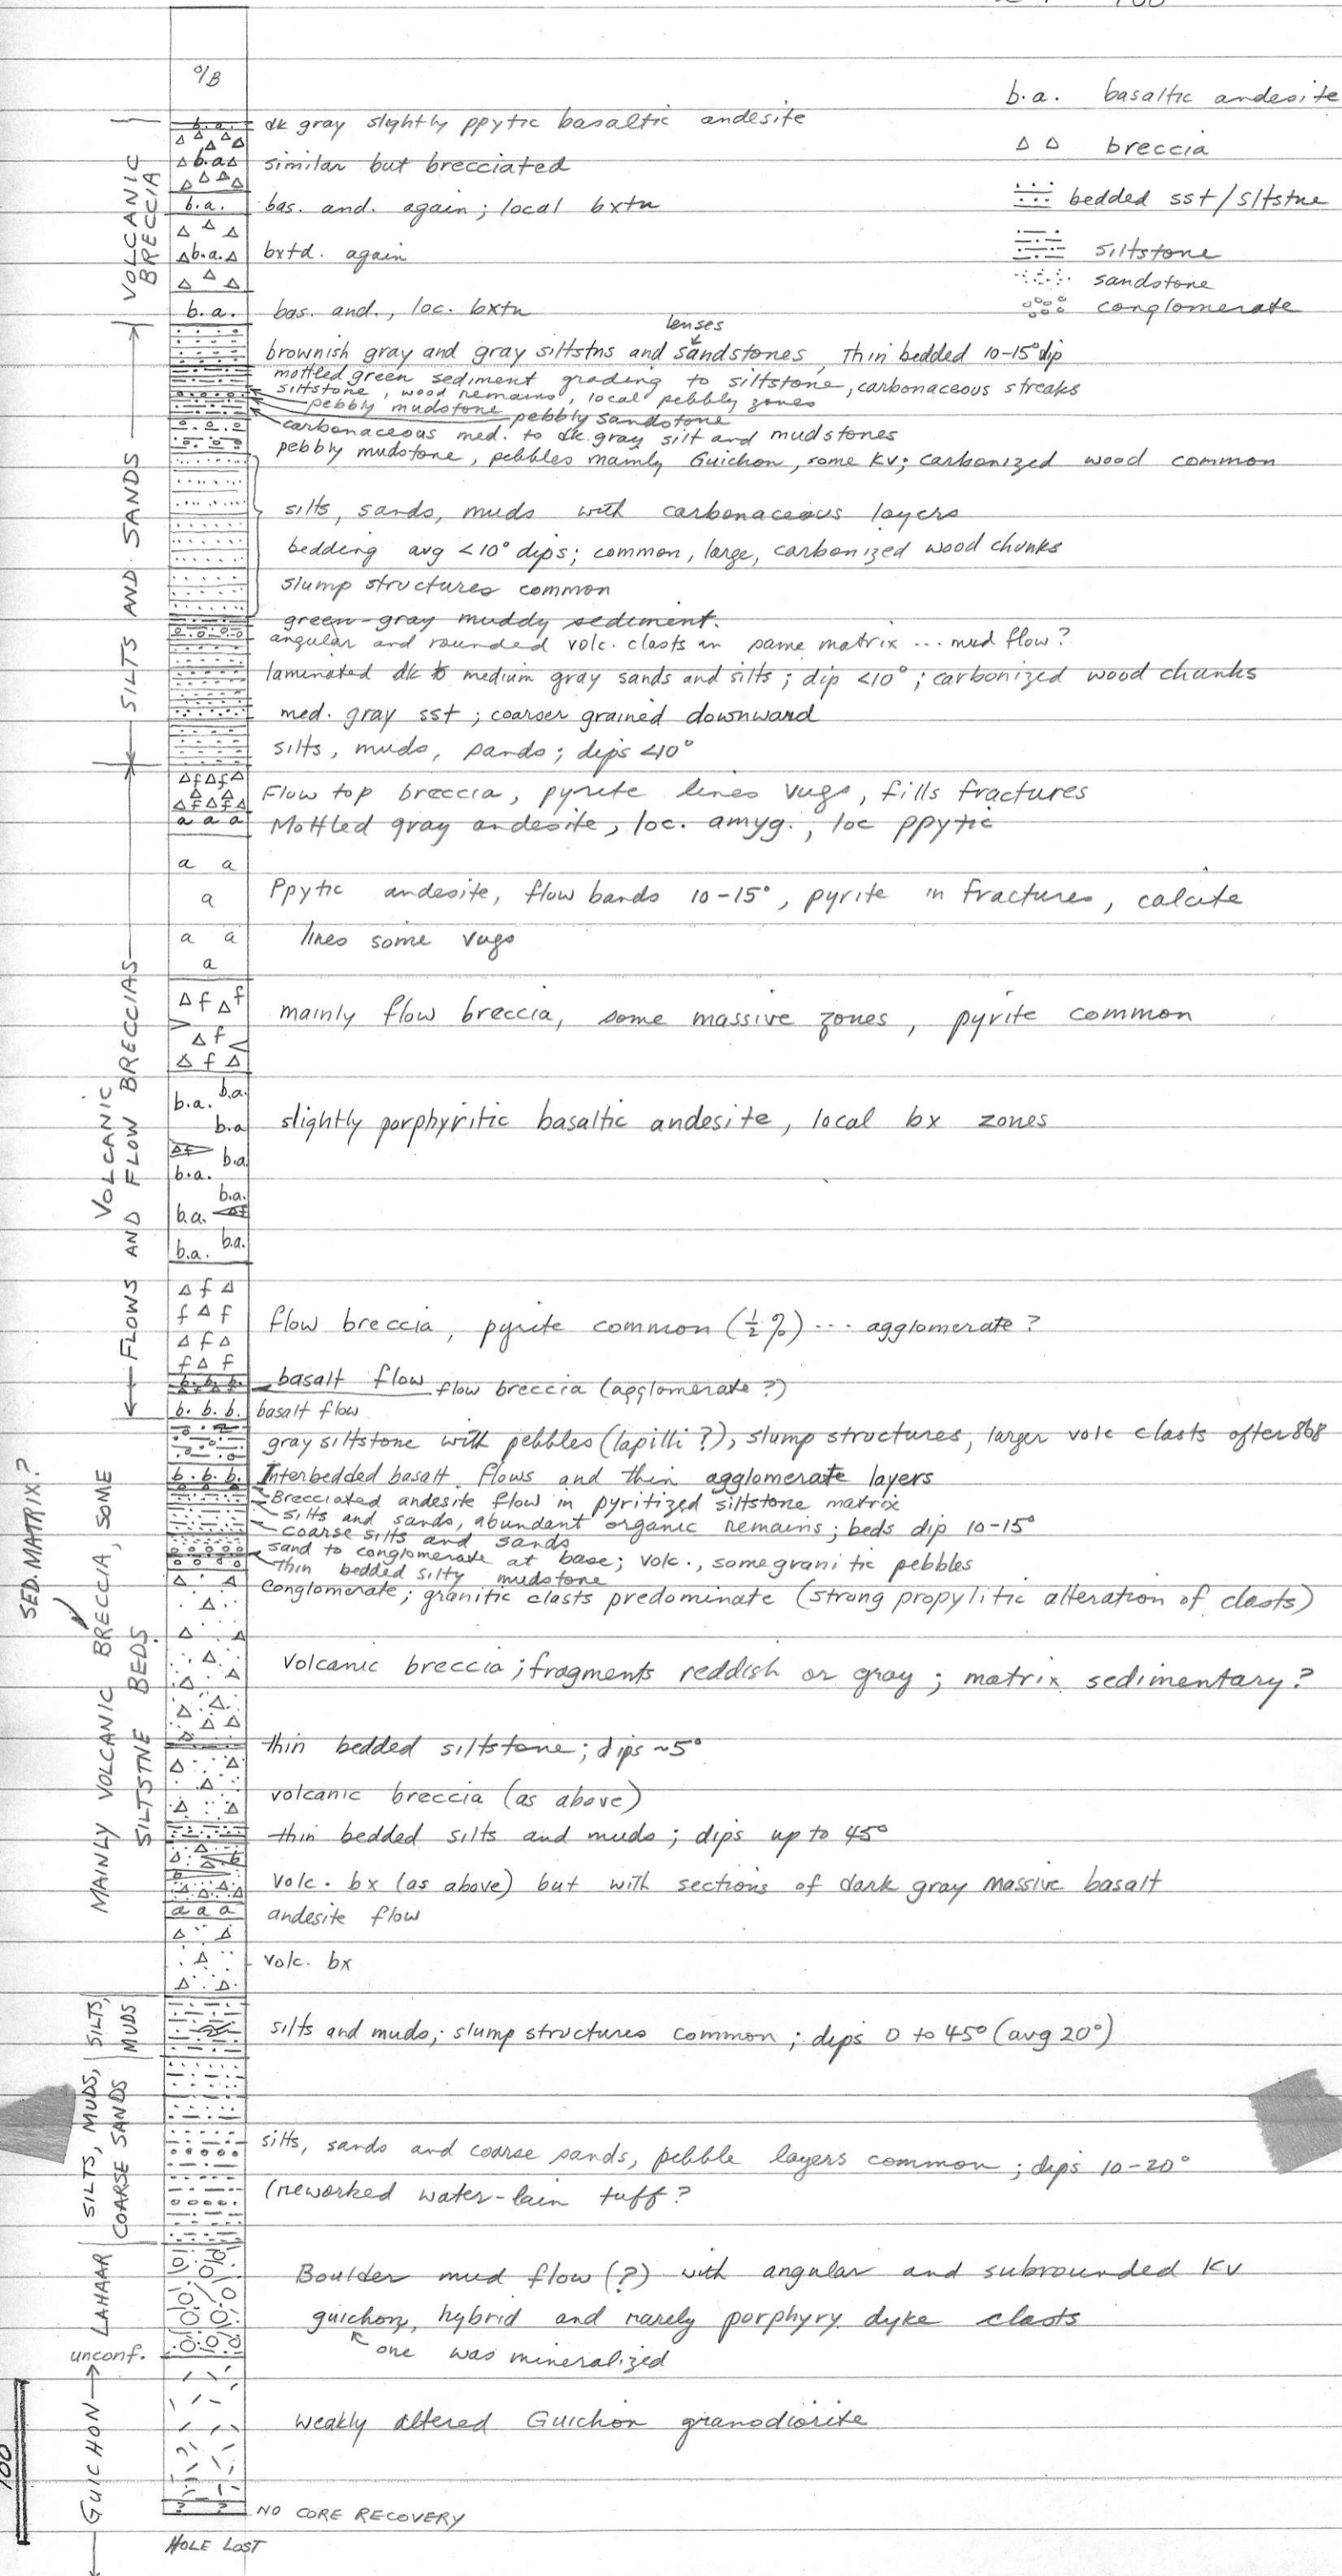 100
O/B
b.a. basaltic andesite
b.a. dk gray slightly ppytic basaltic andesite
breccia
VOLCANIC BRECCIA
b.a. similar but brecciated
bedded sst/sltstne
b.a. bas. and. again; local bxtn
siltstone
b.a. bxtd. again
sandstone
conglomerate
b.a. bas. and., loc. bxtn
lenses
brownish gray and gray siltstns and sandstones, thin bedded 10-15° dip
mottled green sediment grading to siltstone, carbonaceous streaks
siltstone, wood remains, local pebbly zones
pebbly mudstone pebbly sandstone
carbonaceous med. to dk. gray silt and mudstones
pebbly mudstone, pebbles mainly Guichon, some KV; carbonized wood common
SILTS AND SANDS
silts, sands, muds with carbonaceous layers
bedding avg <10° dips; common, large, carbonized wood chunks
slump structures common
green-gray muddy sediment.
angular and rounded volc. clasts in same matrix ... mud flow?
laminated dk to medium gray sands and silts; dip <10°; carbonized wood chunks
med. gray sst; coarser grained downward
silts, muds, sands; dips <10°
f f
f f Flow top breccia, pyrite lines vugs, fills fractures
a a a Mottled gray andesite, loc. amyg., loc ppytic
a a
a Ppytic andesite, flow bands 10-15°, pyrite in fractures, calcite
a a lines some vugs
a
f f
f mainly flow breccia, some massive zones, pyrite common
f
VOLCANIC FLOWS AND FLOW BRECCIAS
b.a. b.a.
b.a slightly porphyritic basaltic andesite, local bx zones
b.a
b.a.
b.a.
b.a.
b.a. b.a.
f
f f flow breccia, pyrite common (½%) ... agglomerate?
f
f f
b. b. b. basalt flow flow breccia (agglomerate?)
b. b. b. basalt flow
gray siltstone with pebbles (lapilli?), slump structures, larger volc clasts after 868
b. b. b. Interbedded basalt flows and thin agglomerate layers
Brecciated andesite flow in pyritized siltstone matrix
silts and sands, abundant organic remains; beds dip 10-15°
coarse silts and sands
sand to conglomerate at base; volc., some granitic pebbles
thin bedded silty mudstone
conglomerate; granitic clasts predominate (strong propylitic alteration of clasts)
SED. MATRIX?
MAINLY VOLCANIC BRECCIA, SOME
SILTSTNE BEDS
Volcanic breccia; fragments reddish or gray; matrix sedimentary?
thin bedded siltstone; dips ~5°
volcanic breccia (as above)
thin bedded silts and muds; dips up to 45°
b
b volc. bx (as above) but with sections of dark gray massive basalt
a a a andesite flow
volc. bx
SILTS, MUDS
silts and muds; slump structures common; dips 0 to 45° (avg 20°)
SILTS, MUDS, COARSE SANDS
silts, sands and coarse sands, pebble layers common; dips 10-20°
(reworked water-lain tuff?
LAHAAR
Boulder mud flow (?) with angular and subrounded KV
guichon, hybrid and rarely porphyry dyke clasts
one was mineralized
unconf.
GUICHON
weakly altered Guichon granodiorite
100
? ? NO CORE RECOVERY
HOLE LOST